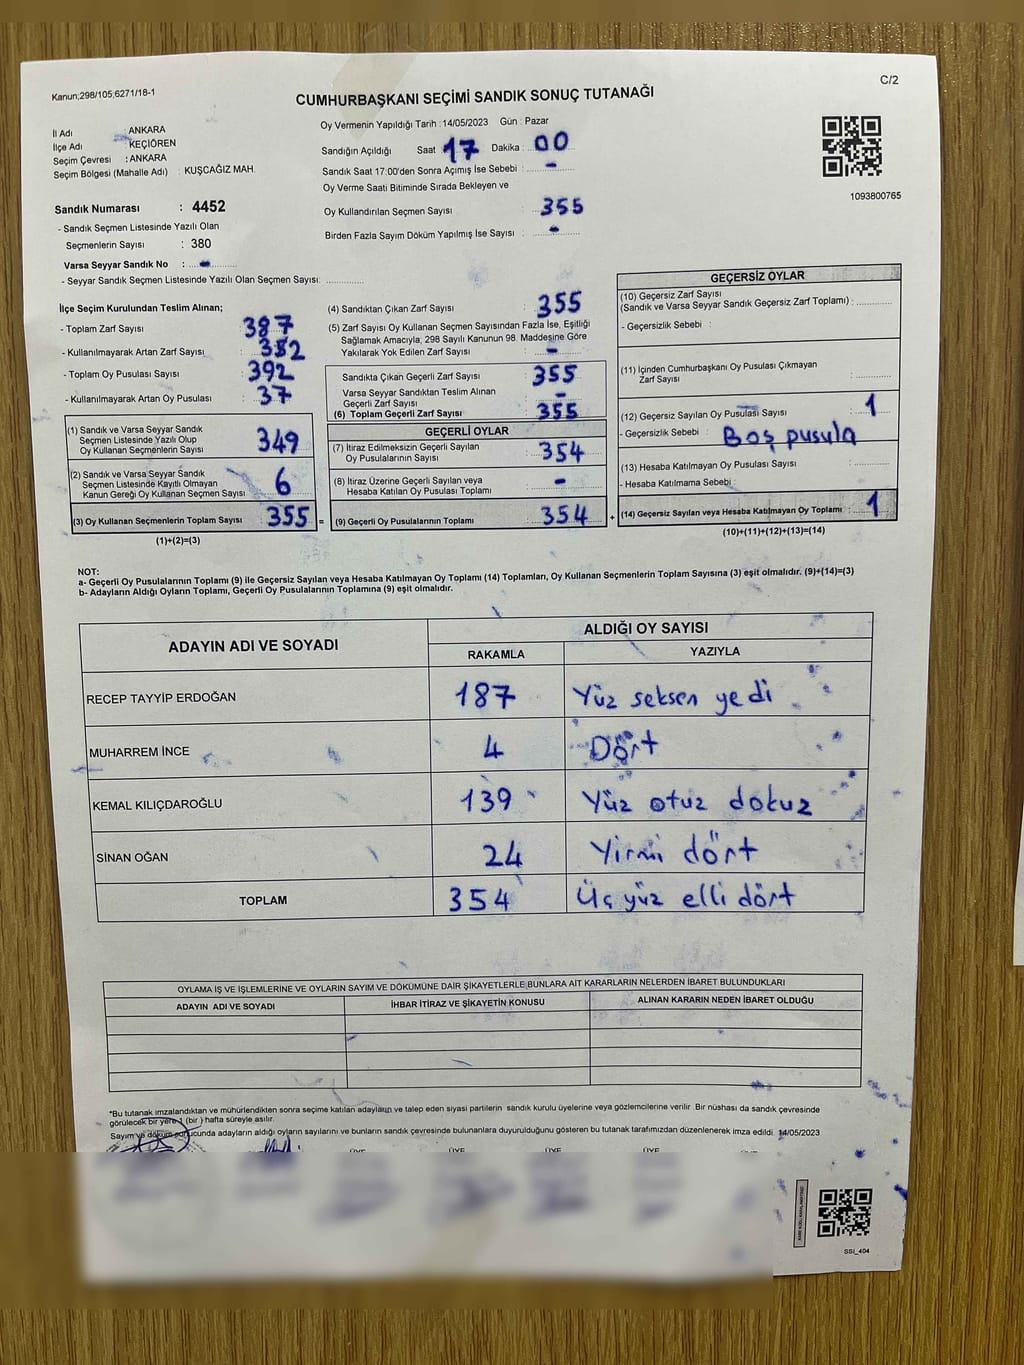 Kanun;298/105;6271/18-1
C/2
CUMHURBAŞKANI SEÇİMİ SANDIK SONUÇ TUTANAĞI
İl Adı : ANKARA
İlçe Adı : KEÇİÖREN
Seçim Çevresi : ANKARA
Seçim Bölgesi (Mahalle Adı) : KUŞCAĞIZ MAH.
Sandık Numarası : 4452
- Sandık Seçmen Listesinde Yazılı Olan
Seçmenlerin Sayısı : 380
Varsa Seyyar Sandık No : -
- Seyyar Sandık Seçmen Listesinde Yazılı Olan Seçmen Sayısı:
Oy Vermenin Yapıldığı Tarih : 14/05/2023 Gün : Pazar
Sandığın Açıldığı Saat 17 Dakika : 00
Sandık Saat 17:00'den Sonra Açımış İse Sebebi : -
Oy Verme Saati Bitiminde Sırada Bekleyen ve
Oy Kullandırılan Seçmen Sayısı : 355
Birden Fazla Sayım Döküm Yapılmış İse Sayısı : -
1093800765
İlçe Seçim Kurulundan Teslim Alınan;
- Toplam Zarf Sayısı : 387
- Kullanılmayarak Artan Zarf Sayısı : 352
- Toplam Oy Pusulası Sayısı : 392
- Kullanılmayarak Artan Oy Pusulası : 37
(1) Sandık ve Varsa Seyyar Sandık
Seçmen Listesinde Yazılı Olup
Oy Kullanan Seçmenlerin Sayısı : 349
(2) Sandık ve Varsa Seyyar Sandık
Seçmen Listesinde Kayıtlı Olmayan
Kanun Gereği Oy Kullanan Seçmen Sayısı : 6
(3) Oy Kullanan Seçmenlerin Toplam Sayısı : 355 =
(1)+(2)=(3)
(4) Sandıktan Çıkan Zarf Sayısı : 355
(5) Zarf Sayısı Oy Kullanan Seçmen Sayısından Fazla İse, Eşitliği
Sağlamak Amacıyla, 298 Sayılı Kanunun 98. Maddesine Göre
Yakılarak Yok Edilen Zarf Sayısı : -
Sandıkta Çıkan Geçerli Zarf Sayısı : 355
Varsa Seyyar Sandıktan Teslim Alınan
Geçerli Zarf Sayısı : -
(6) Toplam Geçerli Zarf Sayısı : 355
GEÇERLİ OYLAR
(7) İtiraz Edilmeksizin Geçerli Sayılan
Oy Pusulalarının Sayısı : 354
(8) İtiraz Üzerine Geçerli Sayılan veya
Hesaba Katılan Oy Pusulası Toplamı : -
(9) Geçerli Oy Pusulalarının Toplamı : 354 +
GEÇERSİZ OYLAR
(10) Geçersiz Zarf Sayısı
(Sandık ve Varsa Seyyar Sandık Geçersiz Zarf Toplamı) :
- Geçersizlik Sebebi :
(11) İçinden Cumhurbaşkanı Oy Pusulası Çıkmayan
Zarf Sayısı :
(12) Geçersiz Sayılan Oy Pusulası Sayısı : 1
- Geçersizlik Sebebi : Boş pusula
(13) Hesaba Katılmayan Oy Pusulası Sayısı :
- Hesaba Katılmama Sebebi :
(14) Geçersiz Sayılan veya Hesaba Katılmayan Oy Toplamı : 1
(10)+(11)+(12)+(13)=(14)
NOT:
a- Geçerli Oy Pusulalarının Toplamı (9) ile Geçersiz Sayılan veya Hesaba Katılmayan Oy Toplamı (14) Toplamları, Oy Kullanan Seçmenlerin Toplam Sayısına (3) eşit olmalıdır. (9)+(14)=(3)
b- Adayların Aldığı Oyların Toplamı, Geçerli Oy Pusulalarının Toplamına (9) eşit olmalıdır.
ADAYIN ADI VE SOYADI ALDIĞI OY SAYISI
RAKAMLA YAZIYLA
RECEP TAYYİP ERDOĞAN 187 Yüz seksen yedi
MUHARREM İNCE 4 Dört
KEMAL KILIÇDAROĞLU 139 Yüz otuz dokuz
SİNAN OĞAN 24 Yirmi dört
TOPLAM 354 Üç yüz elli dört
OYLAMA İŞ VE İŞLEMLERİNE VE OYLARIN SAYIM VE DÖKÜMÜNE DAİR ŞİKAYETLERLE BUNLARA AİT KARARLARIN NELERDEN İBARET BULUNDUKLARI
ADAYIN ADI VE SOYADI İHBAR İTİRAZ VE ŞİKAYETİN KONUSU ALINAN KARARIN NEDEN İBARET OLDUĞU
*Bu tutanak imzalandıktan ve mühürlendikten sonra seçime katılan adayların ve talep eden siyasi partilerin sandık kurulu üyelerine veya gözlemcilerine verilir .Bir nüshası da sandık çevresinde
görülecek bir yere 1 (bir ) hafta süreyle asılır.
Sayım ve döküm sonucunda adayların aldığı oyların sayılarını ve bunların sandık çevresinde bulunanlara duyurulduğunu gösteren bu tutanak tarafımızdan düzenlenerek imza edildi. 14/05/2023
ÜYE ÜYE ÜYE ÜYE
SSI_404